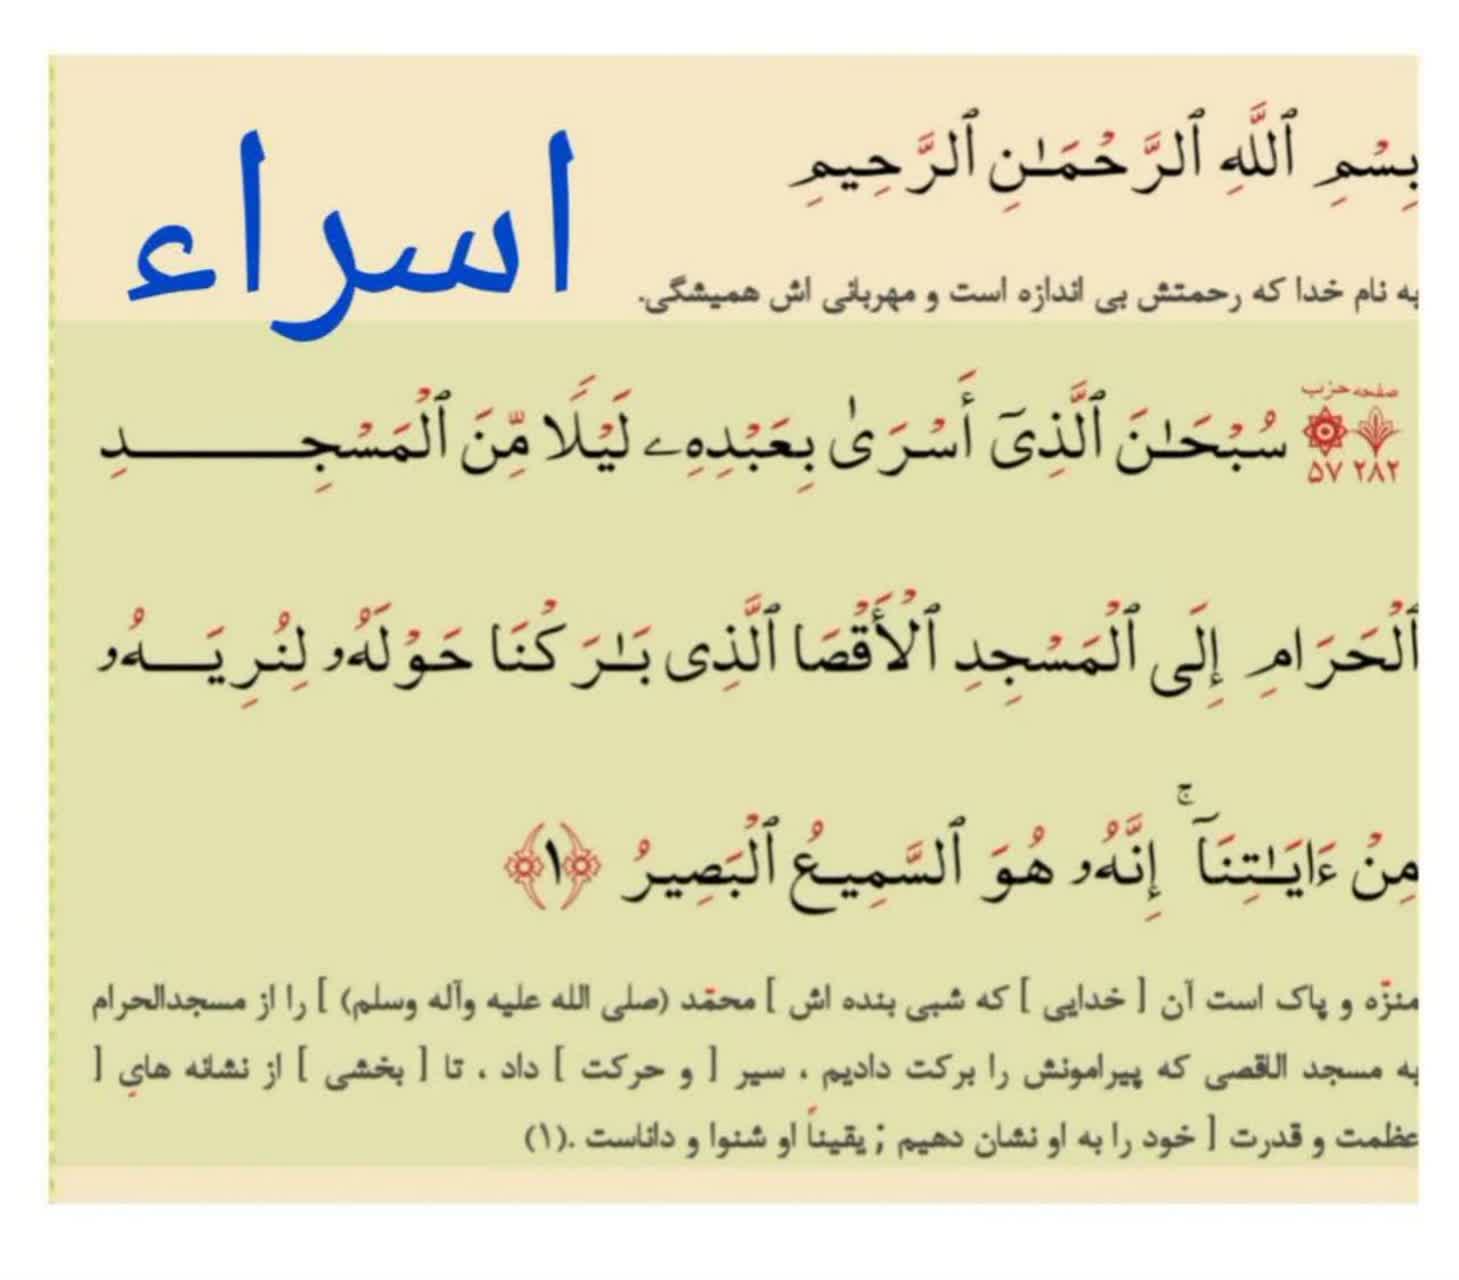 بِسْمِ ٱللَّهِ ٱلرَّحْمَـٰنِ ٱلرَّحِيمِ
اسراء
به نام خدا که رحمتش بی اندازه است و مهربانی اش همیشگی.
صفحه حزب
۲۸۲ ۵۷
سُبْحَـٰنَ ٱلَّذِىٓ أَسْرَىٰ بِعَبْدِهِۦ لَيْلًا مِّنَ ٱلْمَسْجِدِ
ٱلْحَرَامِ إِلَى ٱلْمَسْجِدِ ٱلْأَقْصَا ٱلَّذِى بَـٰرَكْنَا حَوْلَهُۥ لِنُرِيَهُۥ
مِنْ ءَايَـٰتِنَآ ۚ إِنَّهُۥ هُوَ ٱلسَّمِيعُ ٱلْبَصِيرُ ﴿١﴾
منزّه و پاک است آن [ خدایی ] که شبی بنده اش ] محمّد (صلی الله علیه وآله وسلم) [ را از مسجدالحرام
به مسجد الاقصی که پیرامونش را برکت دادیم ، سیر [ و حرکت ] داد ، تا [ بخشی ] از نشانه هایِ [
عظمت و قدرت [ خود را به او نشان دهیم ; یقیناً او شنوا و داناست .(۱)